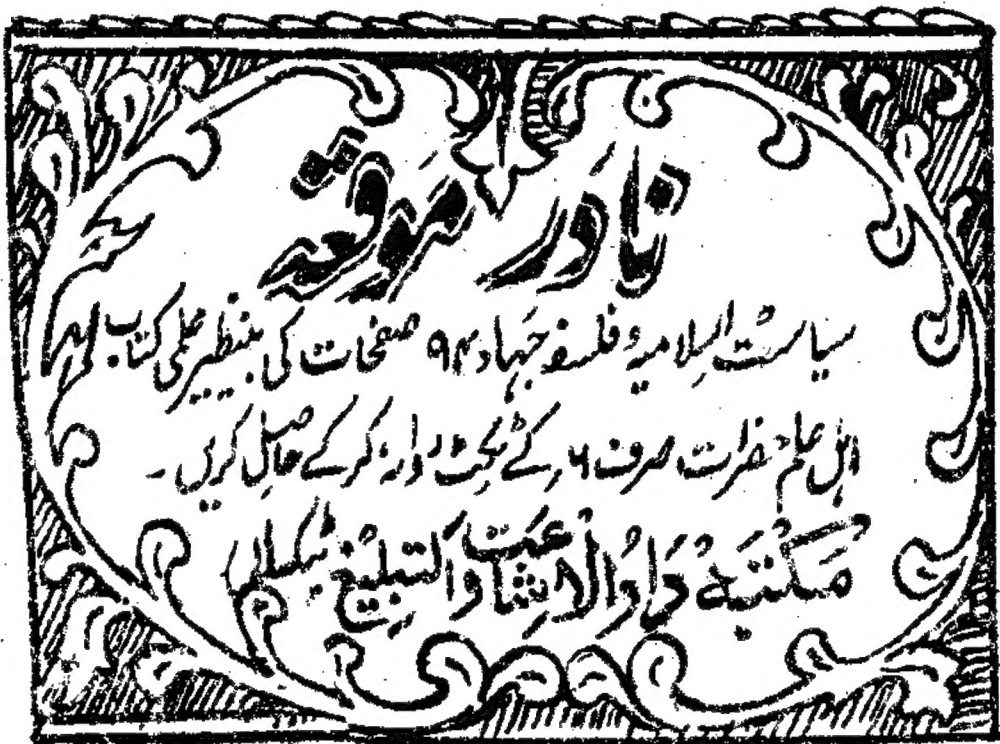 نادر موقعہ
سیاست اسلامیہ و فلسفہ جہاد ۹۴ صفحات کی بینظیر علمی کتاب
اہل علم حضرات صرف ۶ ر کے ٹکٹ روانہ کر کے حاصل کریں۔
مکتبہ دار الاشاعت والتبلیغ